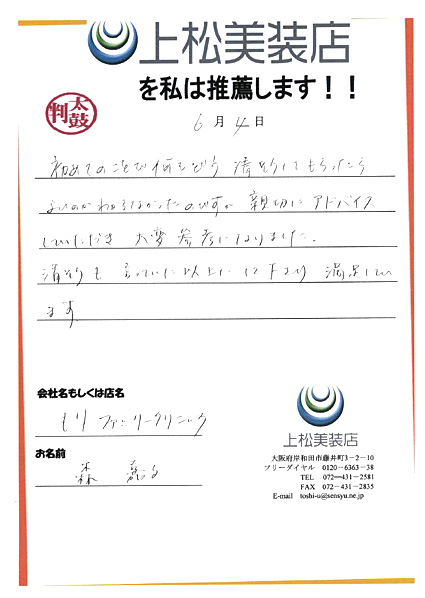 上松美装店
を私は推薦します！！
太鼓判
6月4日
初めてのことで何をどう 清そうしてもらったら
よいのかわからなかったのですが 親切にアドバイス
していただき 大変参考になりました。
清そうも 思っていた以上に 満足してい
ます
会社名もしくは店名
もりファミリークリニック
お名前
森
上松美装店
大阪府岸和田市藤井町3－2－10
フリーダイヤル 0120－6363－38
TEL 072－431－2581
FAX 072－431－2835
E-mail toshi-u@sensyu.ne.jp